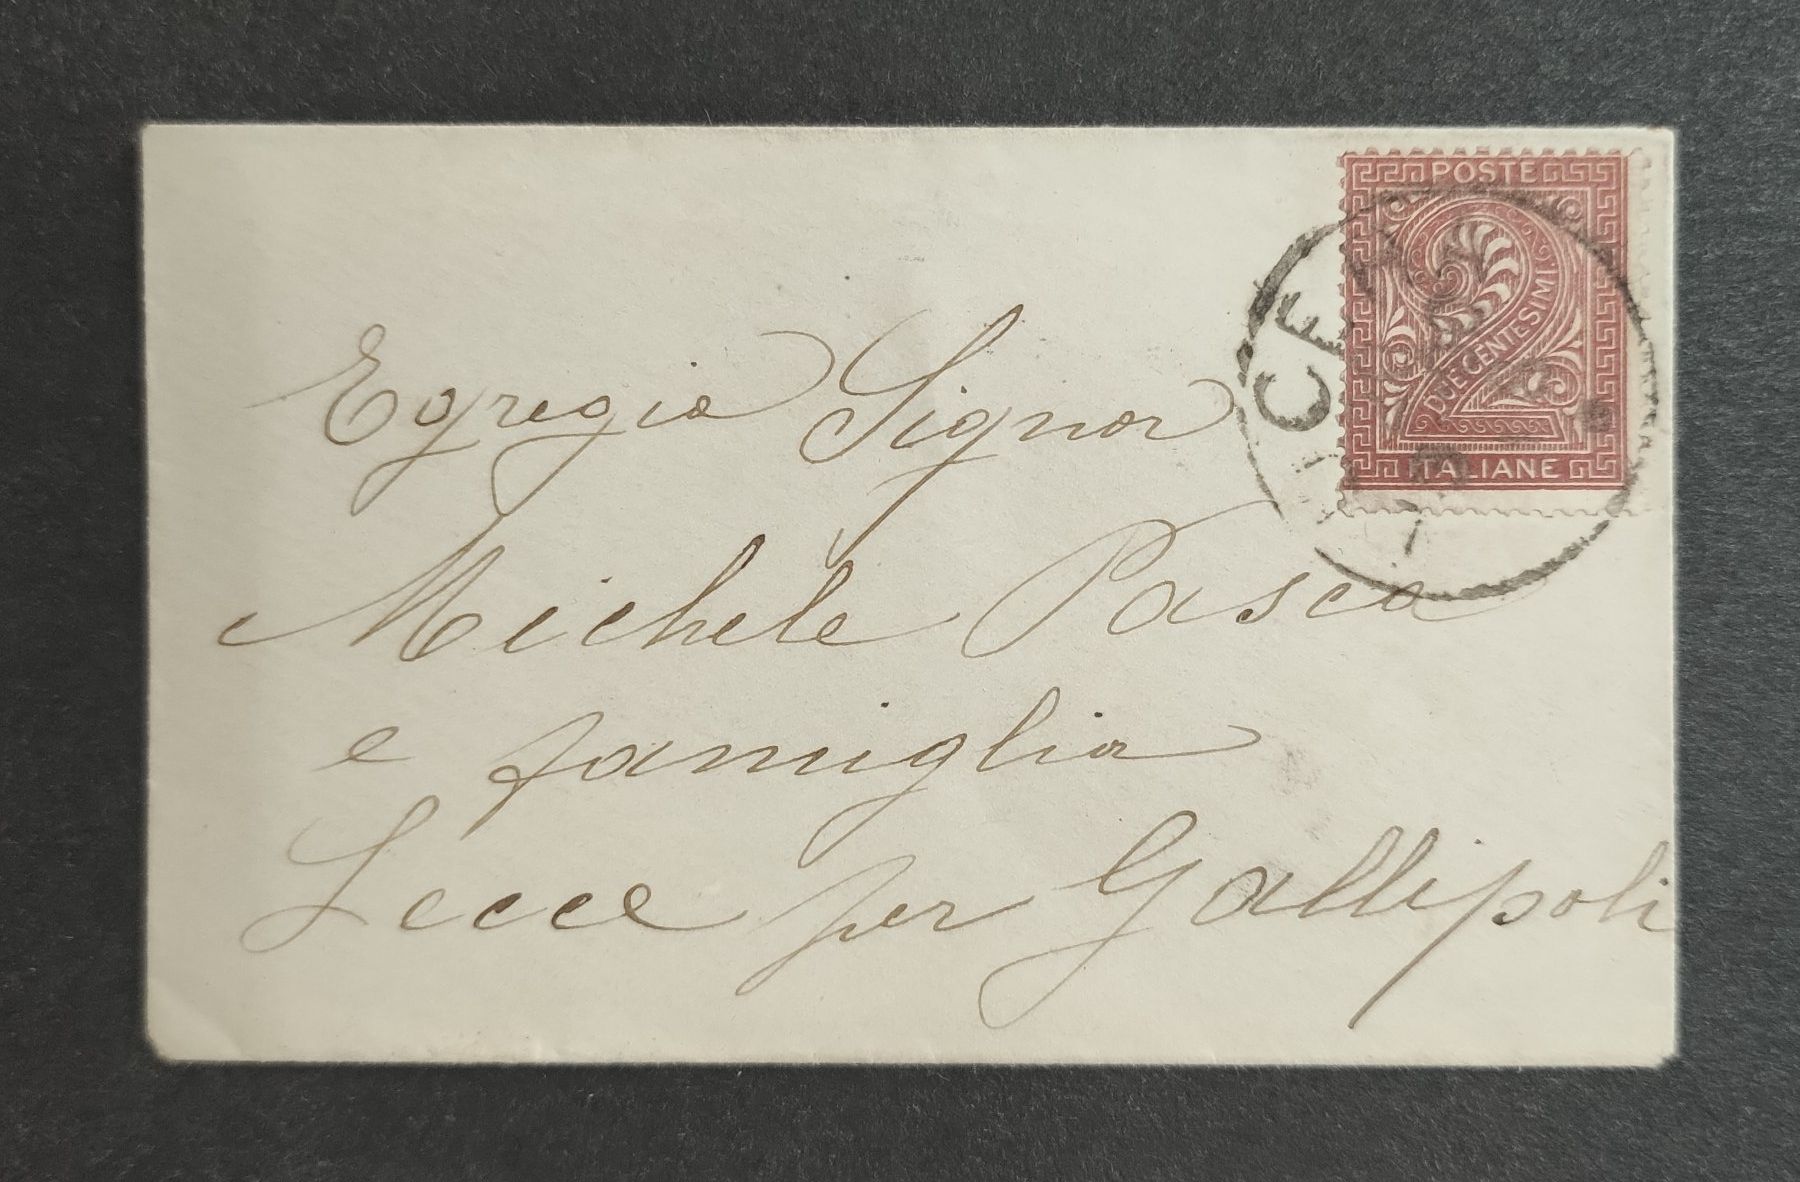 POSTE
DUE CENTESIMI
2
ITALIANE
Egregio Signor
Michele Pasca
e famiglia
Lecce per Gallipoli